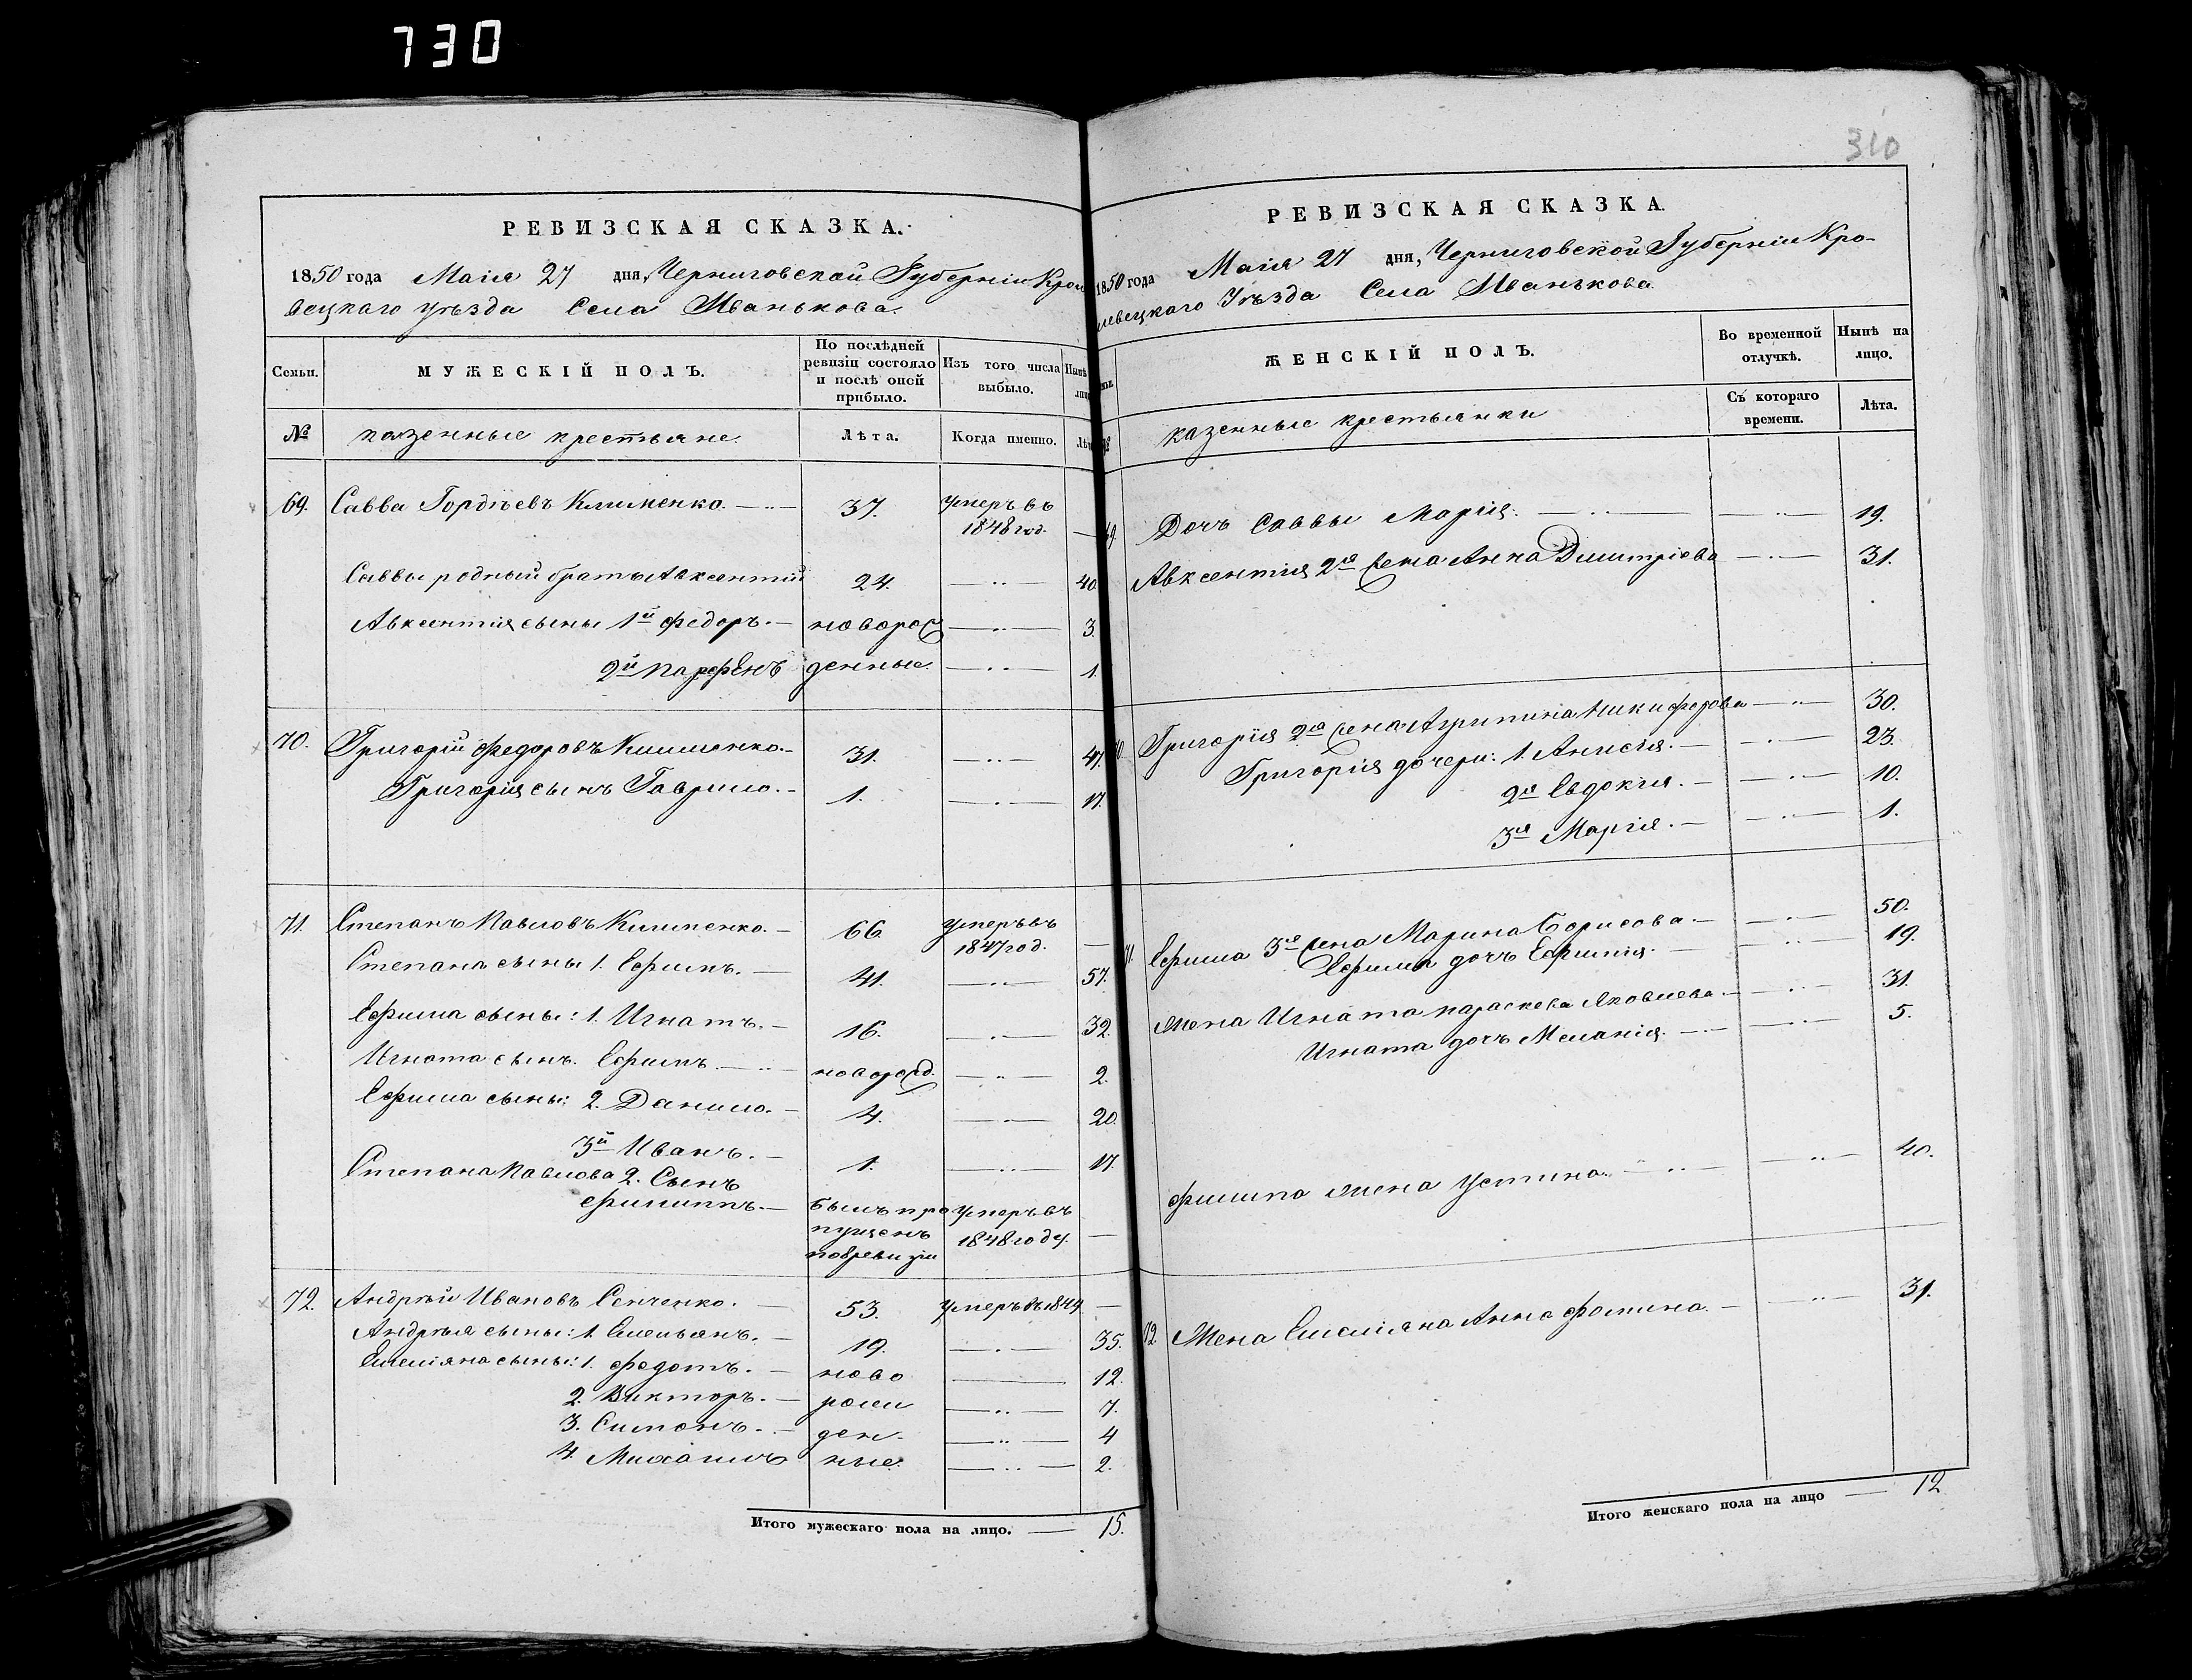 730
310
РЕВИЗСКАЯ СКАЗКА.
1850 года Маія 27 дня, Черниговской Губерніи Крол
вецкаго уѣзда Села Иванькова.
Семьи.
МУЖЕСКІЙ ПОЛЪ.
По послѣдней ревизіи состояло и послѣ оной прибыло.
Изъ того числа выбыло.
Нынѣ лицо
№
казенные крестьяне.
Лѣта.
Когда именно.
Лѣт
69. Савва Гордѣевъ Клименко. 37. умеръ въ
1848 год.
Саввы родный братъ Авксентій 24. 40.
Авксентія сыны 1й Федоръ. новорож 3.
2й Парфенъ денные. 1.
70. Григорій Федоровъ Клименко. 31. 47.
Григорія сынъ Гаврило. 1. 17.
71. Степанъ Павловъ Клименко. 66. умеръ въ
1847 год.
Степана сыны 1. Ефимъ. 41. 57.
Ефима сыны: 1. Игнатъ. 16. 32.
Игната сынъ. Ефимъ. новорожд. 2.
Ефима сыны: 2. Данило. 4. 20.
3й Иванъ. 1. 17.
Степана Павлова 2. Сынъ
Филиппъ. былъ про умеръ въ
пущенъ 1848 году.
по ревизіи
72. Андрѣй Ивановъ Сенченко. 53. умеръ въ 1849
Андрѣя сыны: 1. Емельянъ. 19. 35.
Емеліяна сыны: 1. Федотъ. ново 12.
2. Викторъ. рож 7.
3. Симонъ. ден- 4
4. Михаилъ ные. 2.
Итого мужескаго пола на лицо. 15.
РЕВИЗСКАЯ СКАЗКА.
1850 года Маія 27 дня, Черниговской Губерніи Кро-
левецкаго Уѣзда Села Иванькова.
ЖЕНСКІЙ ПОЛЪ.
Во временной отлучкѣ.
Нынѣ на лицо.
№
казенные крестьянки
Съ котораго времени.
Лѣта.
69. Дочь Саввы Марія. 19.
Авксентія 2я жена Анна Дмитріева 31.
70. Григорія 2я жена Агрипина Никифорова 30.
Григорія дочери: 1. Анисія. 23.
2я Евдокія. 10.
3я Марія. 1.
71. Ефима 3я жена Марина Борисова 50.
Ефима дочь Ефимія. 19.
Жена Игната Параскева Яковлева. 31.
Игната дочь Меланія. 5.
Филипа жена Устина. 40.
72. Жена Емеліяна Анна Фомина. 31.
Итого женскаго пола на лицо 12